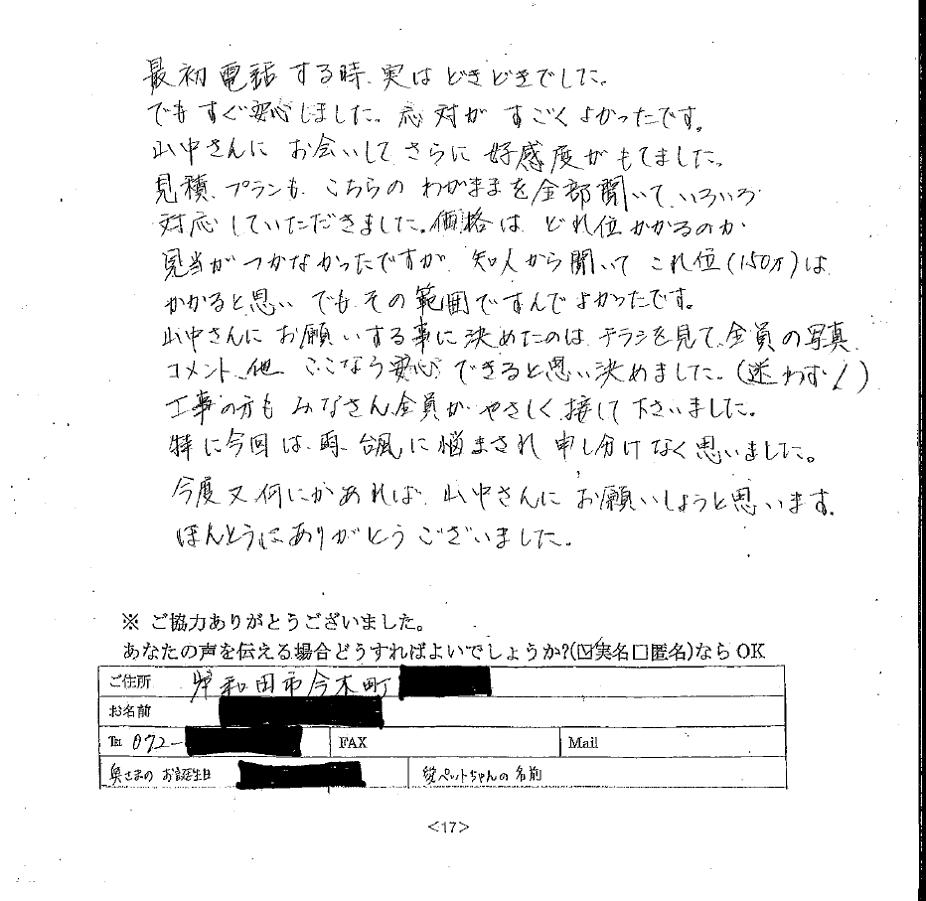 最初電話する時、実はどきどきでした。
でもすぐ安心しました。応対がすごくよかったです。
山中さんにお会いしてさらに好感度がもてました。
見積、プランも、こちらのわがままを全部聞いて、いろいろ
対応していただきました。価格は、どれ位かかるのか
見当がつかなかったですが、知人から聞いてこれ位(150万)は
かかると思いでもその範囲ですんでよかったです。
山中さんにお願いする事に決めたのは、チラシを見て、全員の写真、
コメント、他、ここなら安心できると思い決めました。(迷わず!)
工事の方もみなさん全員がやさしく接して下さいました。
特に今回は、雨、台風に悩まされ申し分けなく思いました。
今度又何にかあれば、山中さんにお願いしようと思います。
ほんとうにありがとうございました。
※ ご協力ありがとうございました。
あなたの声を伝える場合どうすればよいでしょうか?(☑実名□匿名)なら OK
ご住所 岸和田市今木町
お名前
℡ 072- FAX Mail
奥さまの お誕生日 愛ペットちゃんの名前
<17>